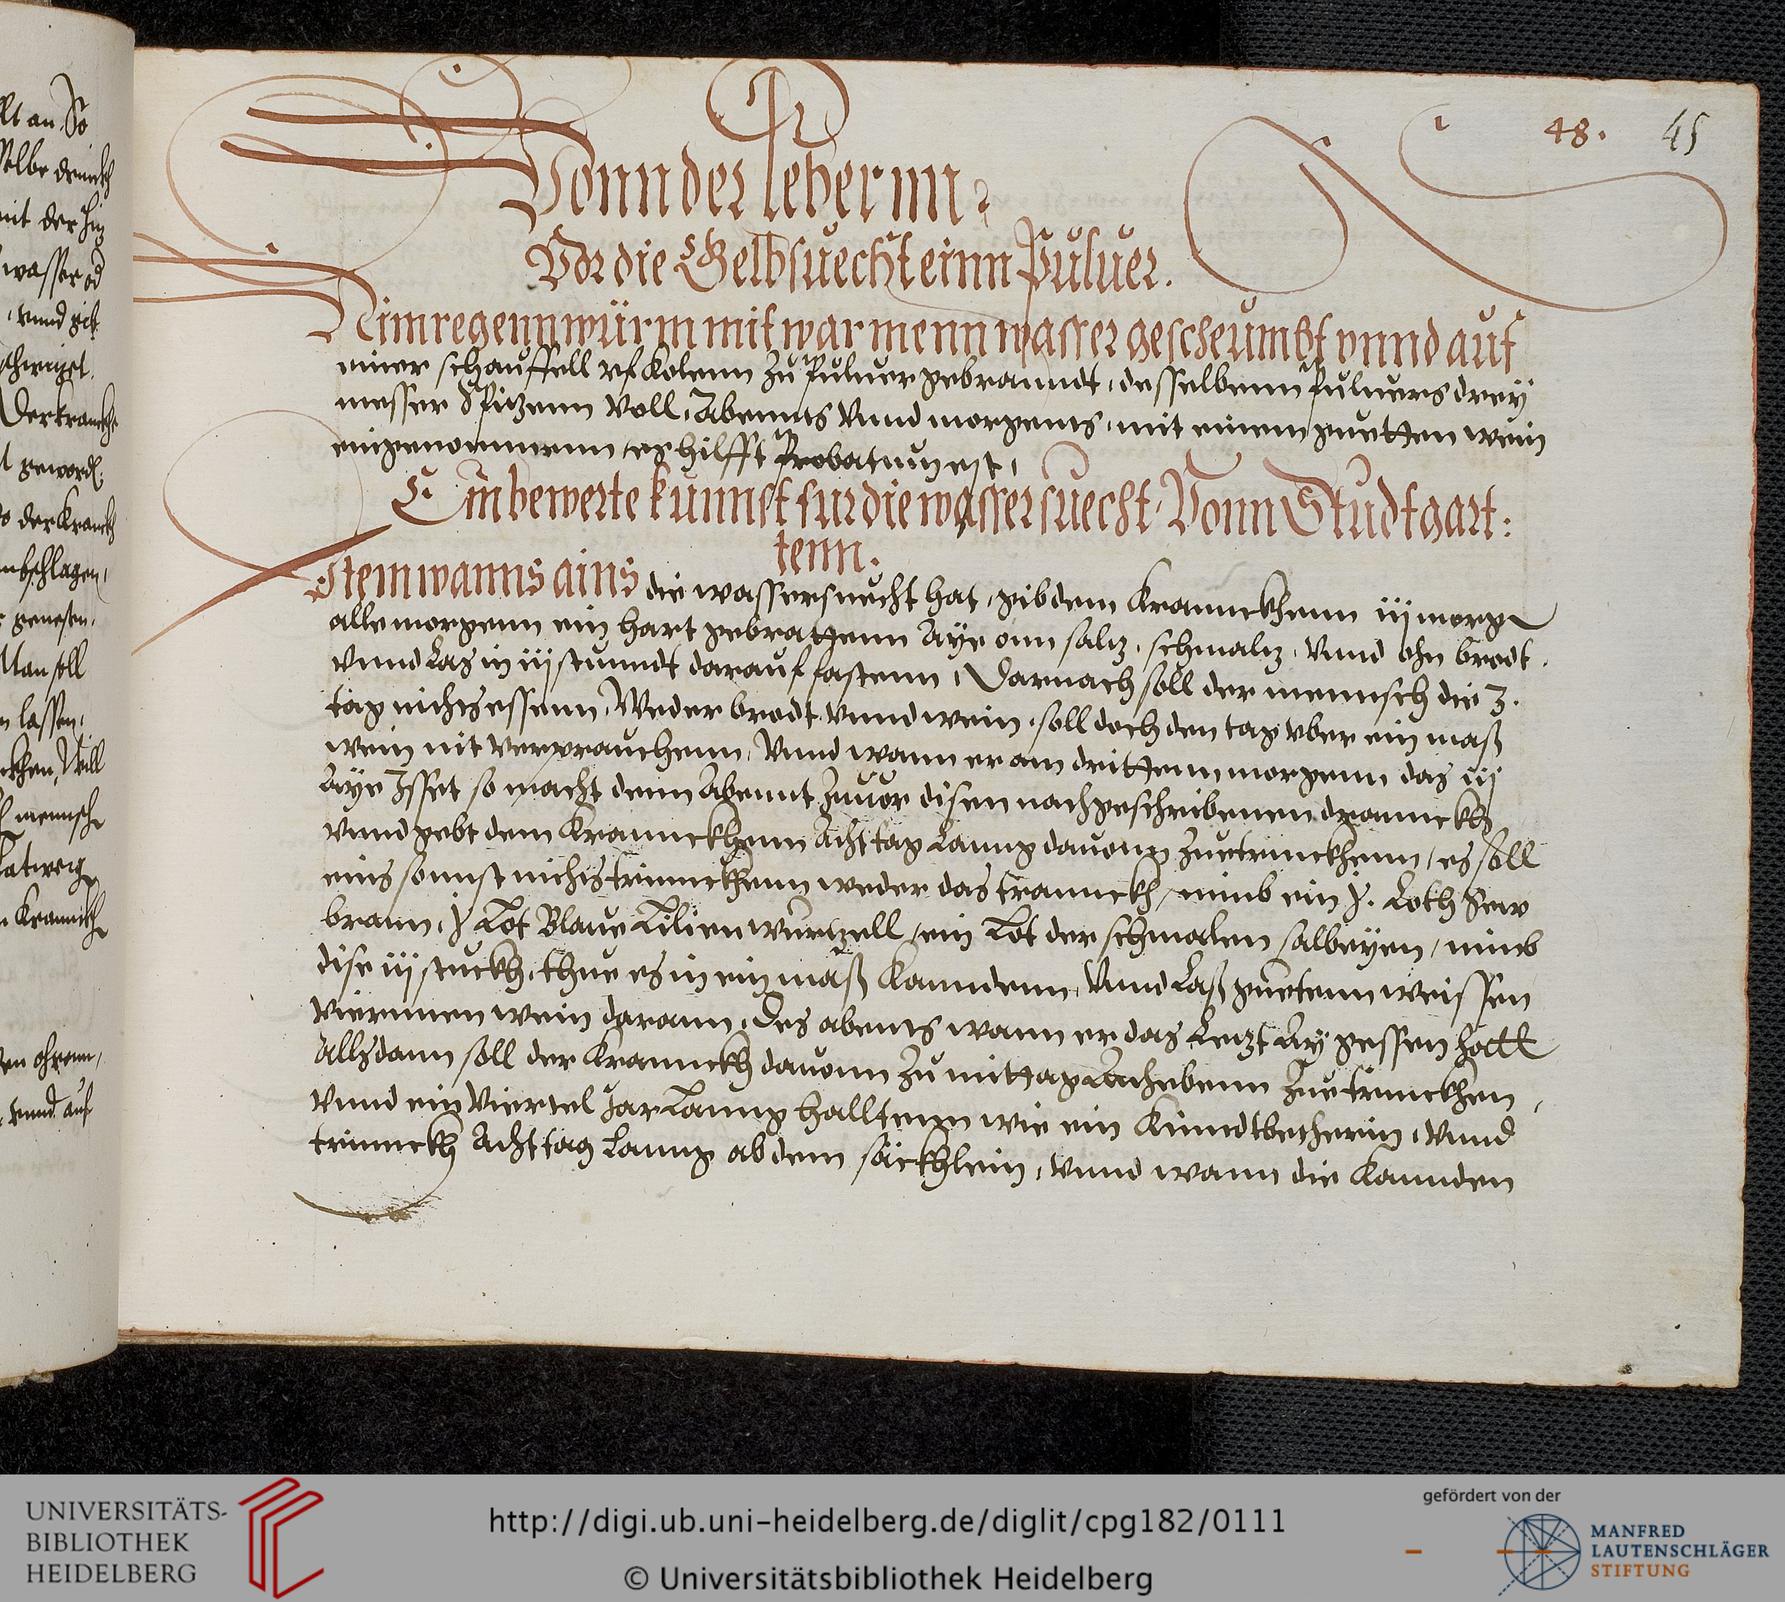 48. 45
R
Vonn der lebernn
Vor die Gelbsuecht einn Puluer.
Nim regennwürm mit warmenn wasser gescheumbt vnnd auf
einer schauffell vf Kolenn zu Puluer gebranndt, desselbenn Puluers drey
messer Spitzenn voll, Abennts vnnd morgents, mit einem guetten wein
eingenommenn, es hilfft Probatum est,
Ein bewerte kunnst fur die wassersuecht, Vonn Studtgart:
tenn.
Item wanns ains die wassersuecht hat, gib dem Krannckhenn iij morge
alle morgenn ein hart gebrattenn Aye onn saltz, schmaltz, vnnd ohn brodt,
vnnd Las in iij stunndt darauf fastenn, Darnach soll der mennsch die 3.
tag nichts essenn, Weder brodt vnnd wein, soll doch den tag vber ein maß
wein nit verprauchenn, vnnd wann er am drittenn morgenn das iij
Aye Isset so macht denn Abennt zuuor disen nachgeschribenen dranncks
vnnd gebt dem Krannckhenn Acht tag Lanng dauonn zuetrinckhenn, es soll
eins sonnst nichts trinnckhenn weder das tranckh, nimb ein j. Loth
brann, j Lot Blaue Lilien wurtzell, ein Lot der schmalen salbeyen, nimb
dise iij stuckh, thue es in ein maß Kanndenn, vnnd Laß guetenn weissen
viernnen wein darann, Des abents wann er das Letzt Ay gessen hatt
Allsdann soll der Kranckh dauonn zu mittag Anhebenn zue trinckhen,
vnnd ein viertel Jar Lanng halltenn wie ein Kinndtbetherin, vnnd
trinnckh Acht tag Lanng ab dem säckhlein, vnnd wann die Kannden
lt an So
selbe
mit der
wasser od
, vnnd
schweiget.
Der kranckh
geword.
so der Kranckh
umbschlagen,
genesen.
Man soll
lassen,
Will
mennsch
Latwerg
Kranckh
ohrenn,
vnnd auf
UNIVERSITÄTS-
BIBLIOTHEK
HEIDELBERG
http://digi.ub.uni-heidelberg.de/diglit/cpg182/0111
© Universitätsbibliothek Heidelberg
gefördert von der
MANFRED
LAUTENSCHLÄGER
STIFTUNG